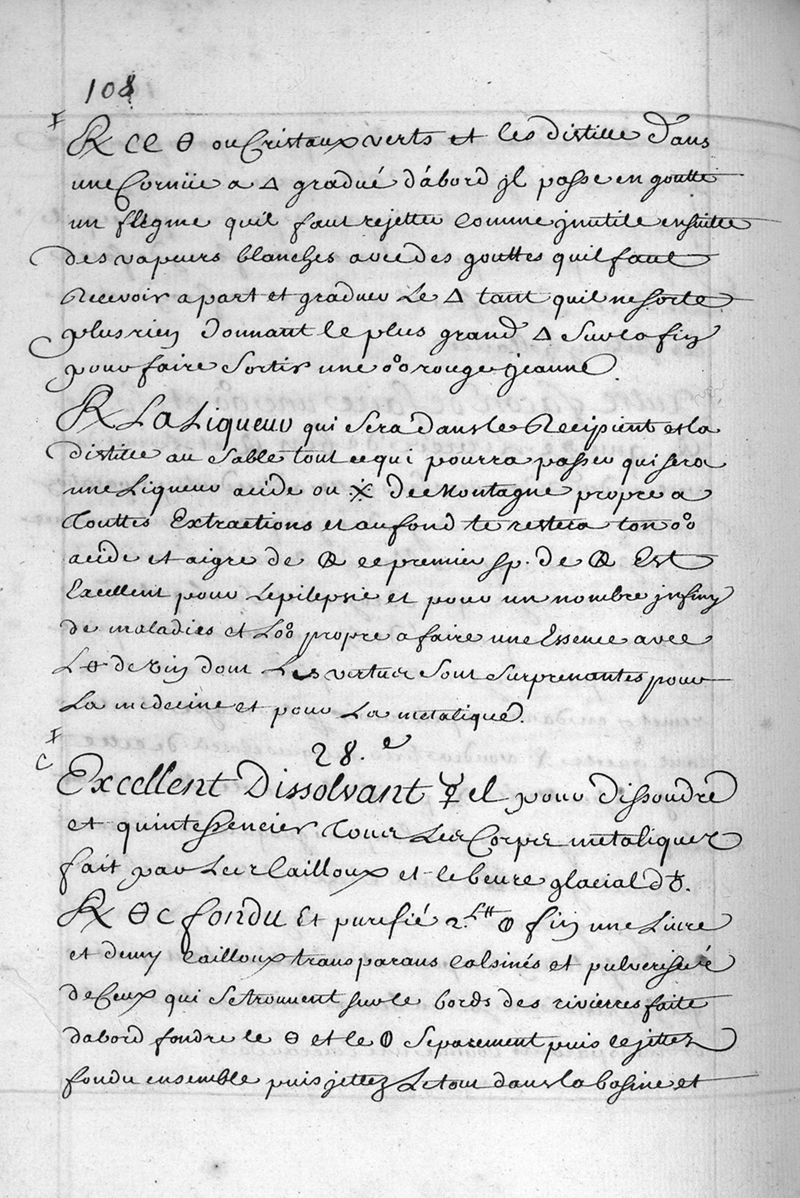 108
℞ ce ⊖ ou Cristaux verts et les distille d'ans
une Cornüe a △ gradué d'abord jl passe en goutte
un flegme quil faut rejetter comme jnutile ensuitte
des vapeurs blanches avec des gouttes quil faut
Recevoir apart et graduer Le △ tant quil ne sorte
plus rien donnant le plus grand △ sur la fin
pour faire sortir une o°o rouge jeaune.
℞ La Liqueur qui sera dans le Recipient et la
distille au sable tout ce qui pourra passer qui sera
une Liqueur acide ou ⁜ de Montagne propre a
Touttes Extractions et au fond te restera ton o°o
acide et aigre de ce premier sp. de Est
Excellent pour Lepilepsie et pour un nombre jnfiny
de maladies et Lo°o propre a faire une Essence avec
L de vin dont Les vertus sont surprenantes pour
La medecine et pour La metalique.
28.e
Excellent Dissolvant ☿el pour dissoudre
et quintessencier Tous Les Corps metaliques
fait par Les Cailloux et le beure glacial d♁.
℞ ⊖c fondu Et purifié 2.Ltt ⦶ fin une Livre
et demy cailloux transparans calsinés et pulverisé
de Ceux qui se trouvent sur le bords des rivierres faite
dabord fondre le ⊖ et le ⦶ separement puis le jettez
fondu ensemble puis jettez Le tout dans la basine et